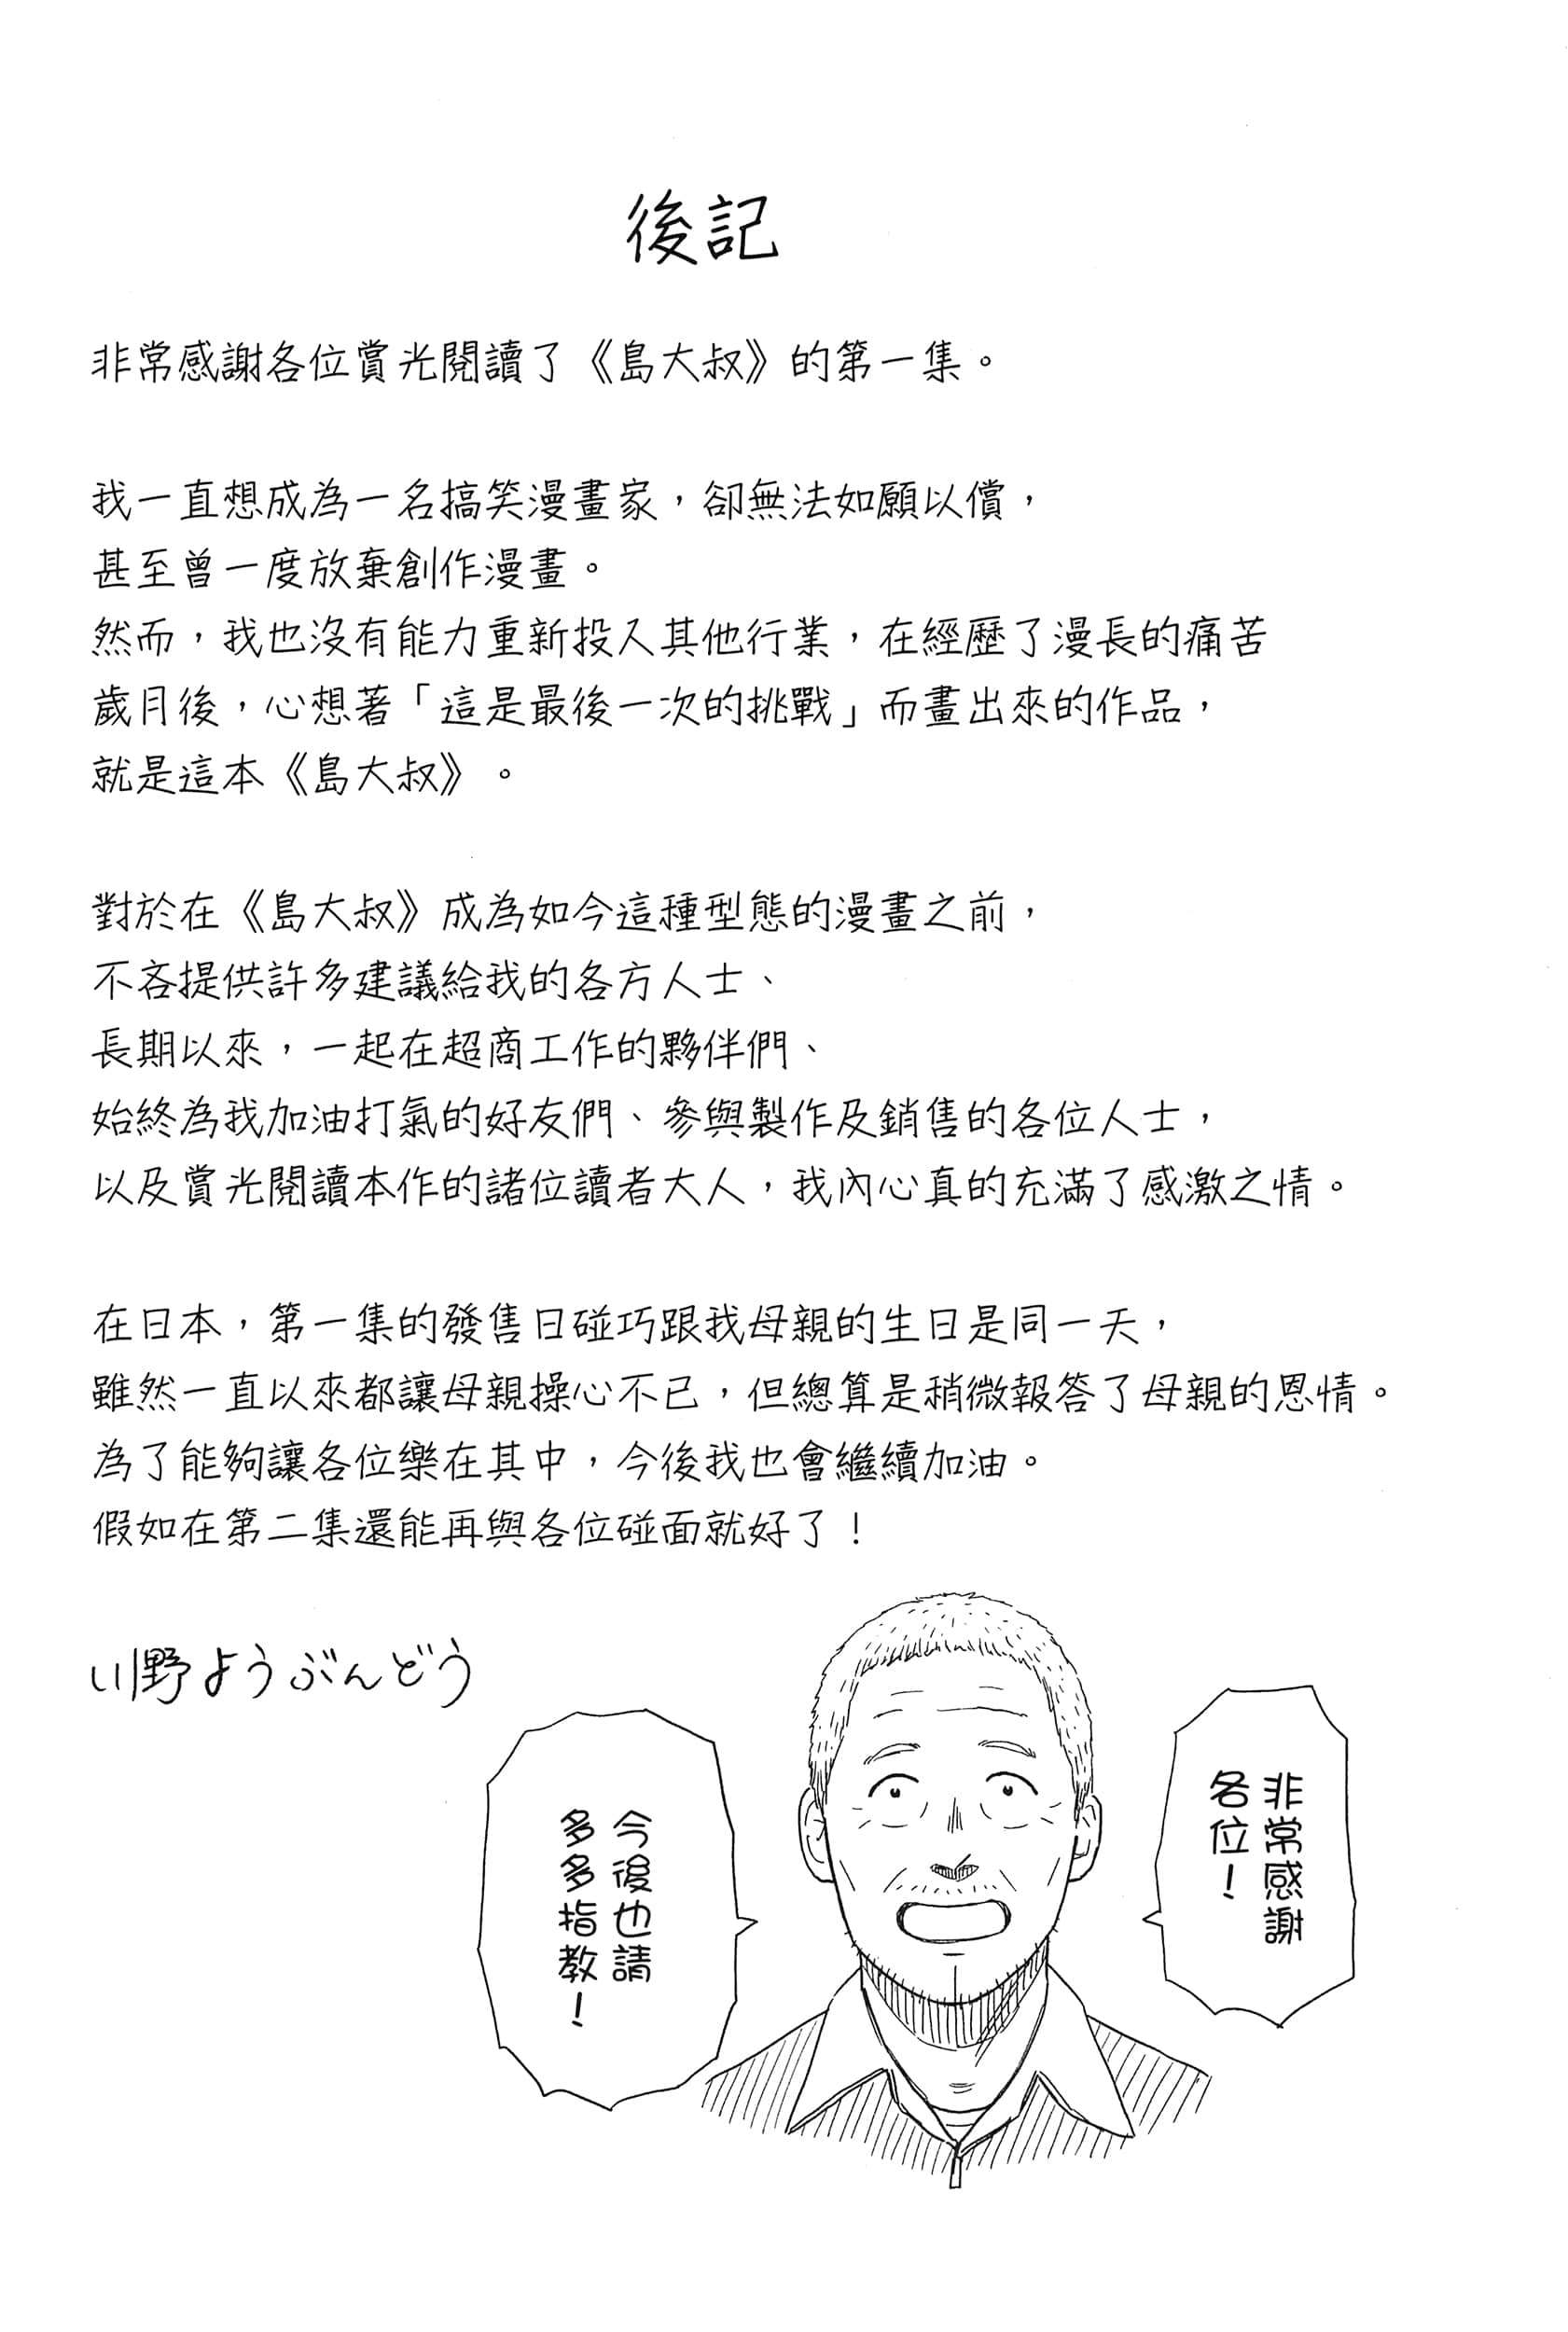 後記
非常感謝各位賞光閱讀了《島大叔》的第一集。
我一直想成為一名搞笑漫畫家，卻無法如願以償，
甚至曾一度放棄創作漫畫。
然而，我也沒有能力重新投入其他行業，在經歷了漫長的痛苦
歲月後，心想著「這是最後一次的挑戰」而畫出來的作品，
就是這本《島大叔》。
對於在《島大叔》成為如今這種型態的漫畫之前，
不吝提供許多建議給我的各方人士、
長期以來，一起在超商工作的夥伴們、
始終為我加油打氣的好友們、參與製作及銷售的各位人士，
以及賞光閱讀本作的諸位讀者大人，我內心真的充滿了感激之情。
在日本，第一集的發售日碰巧跟我母親的生日是同一天，
雖然一直以來都讓母親操心不已，但總算是稍微報答了母親的恩情。
為了能夠讓各位樂在其中，今後我也會繼續加油。
假如在第二集還能再與各位碰面就好了！
川野ようぶんどう
非常感謝
各位！
今後也請
多多指教！